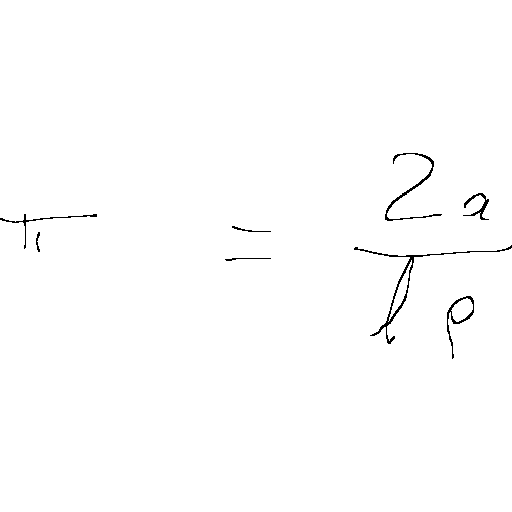 π = 2a / lρ